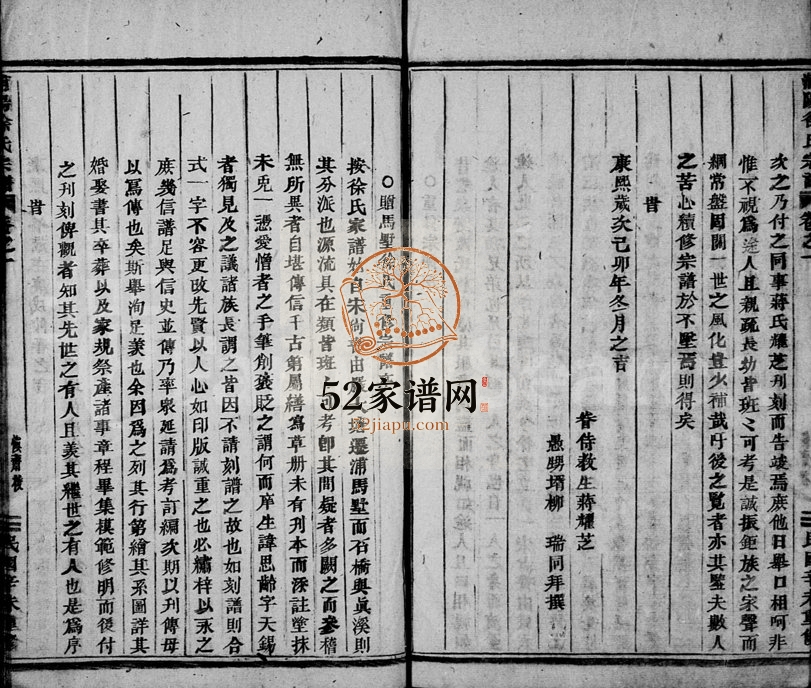 次之乃付之同事蔣氏耀芝刊刻而告竣焉庶他日舉口相呵非
惟不視爲途人且親疏長幼皆班〻可考是誠振鉅族之家聲而
綱常盤固關一世之風化豈少補哉吁後之覧者亦其鑒夫數人
之苦心積修宗譜於不墜焉則得矣
旹
康熙歲次己卯年冬月之吉
眷侍教生蔣耀芝
愚甥壻柳 瑞同拜撰
○贈馬墅徐氏重修宗譜
按徐氏家譜始自宋尚書由遷浦馬墅而石橋與眞溪則
其分派也源流具在類皆班可考卽其間疑者多闕之而參稽
無所異者自堪傳信千古第屬繕寫草册未有刊本而深註塗抹
未免一憑愛憎者之手筆削褒貶之謂何而庠生諱思齡字天錫
者獨見及之議諸族長謂之皆因不請刻譜之故也如刻譜則合
式一字不容更改先賢以人心如印版誠重之也必繡梓以永之
庶幾信譜足與信史並傳乃率衆延請爲考訂編次期以刊傳毋
以寫傳也矣斯舉洵足羙也余因爲之列其行第繪其系圖詳其
婚娶書其卒葬以及家規祭產諸事章程畢集模範修明而後付
之刊刻俾觀者知其先世之有人且羙其繼世之有人也是爲序
旹
徐氏宗譜
民國辛未重修
52家谱网
52jiapu.com